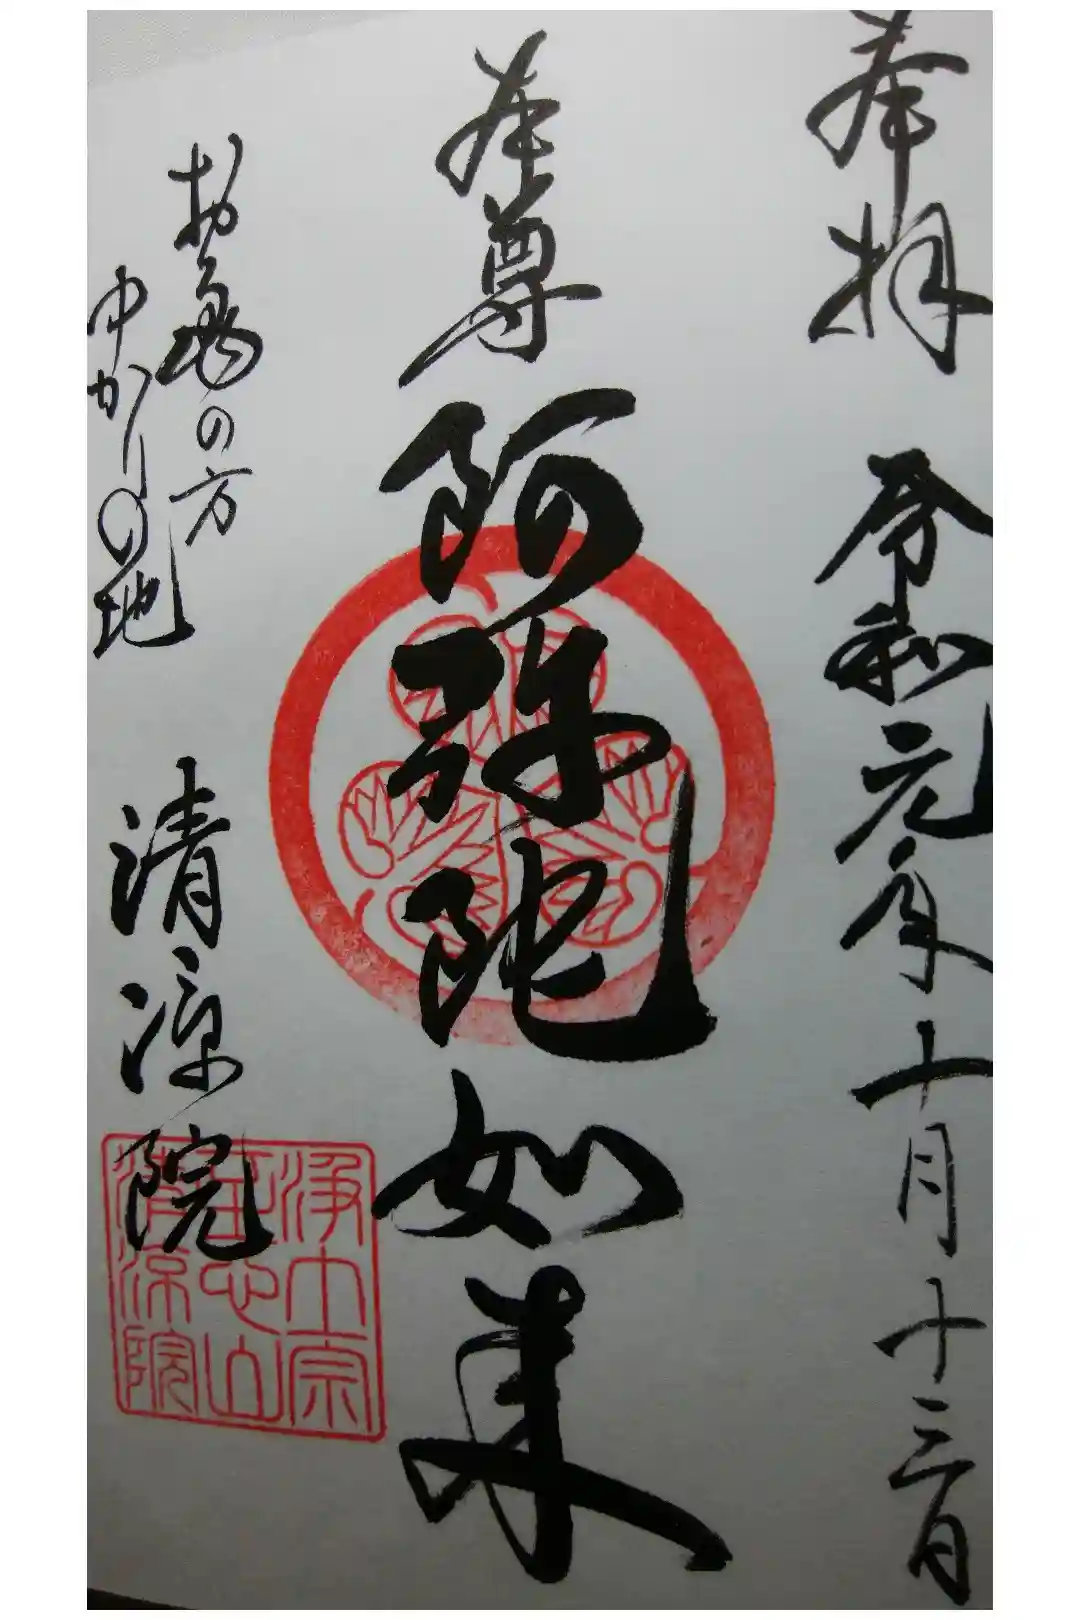 奉拝 令和元年十月十三日
本尊 阿弥陀如来
お亀の方
ゆかりの地
清涼院
浄土宗
正心山
清涼院